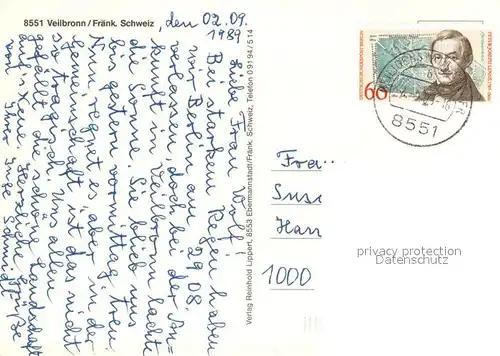 8551 Veilbronn/Fränk. Schweiz
, den 02.09.
1989
Liebe Frau Wolf!
Bei starken Regen haben
wir Berlin am 29.08.
verlassen doch bei der An-
kunft in Veilbronn lachte
die Sonne. Sie blieb uns
bis gestern vormittag treu.
Nun regnet es, aber in der
Gemeinschaft ist das nicht
so tragisch. Uns allen
gefällt die schöne Landschaft
aufs Neue. Herzliche Grüße
von Ihrer Inge Schmidt
Verlag Reinhold Lippert, 8553 Ebermannstadt/Fränk. Schweiz, Telefon 09194/514
60
8551
Fra
Susi
Han
1000
privacy protection
Datenschutz